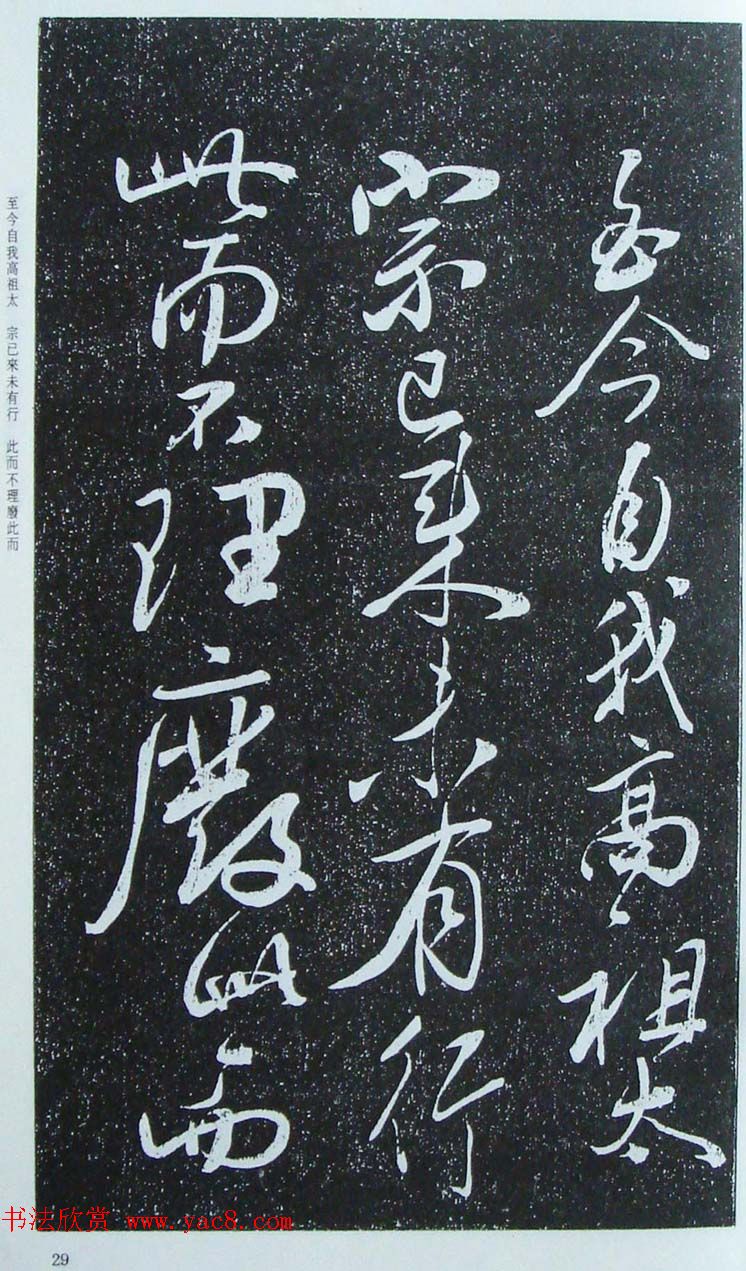 至今自我高祖太
宗已來未有行
此而不理廢此而
至今自我高祖太　宗已來未有行　此而不理廢此而
书法欣赏 www.yac8.com
29